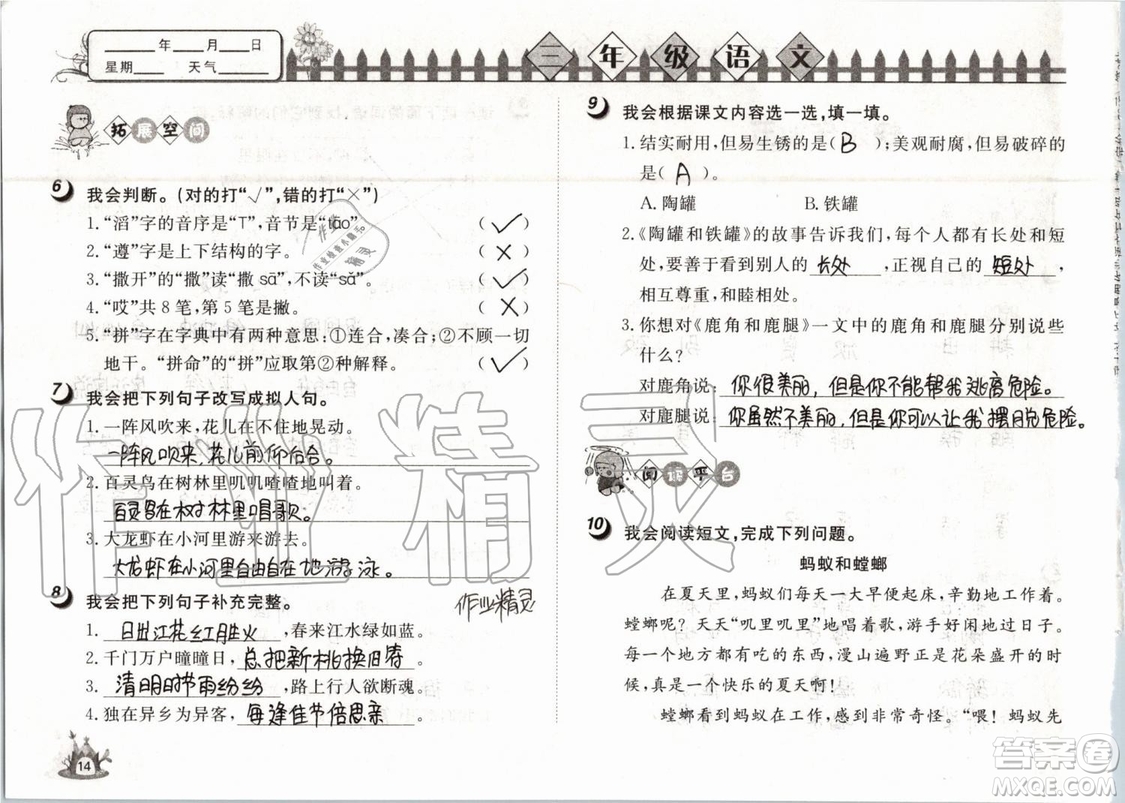 ____年____月____日
星期____ 天气____
三年级语文
拓展空间
6 我会判断。(对的打“√”,错的打“×”)
1.“滔”字的音序是“T”,音节是“tāo” (✓)
2.“遵”字是上下结构的字。 (×)
3.“撒开”的“撒”读“撒 sā”,不读“sǎ”。 (✓)
4.“哎”共8笔,第5笔是撇。 (×)
5.“拼”字在字典中有两种意思:①连合,凑合;②不顾一切
地干。“拼命”的“拼”应取第②种解释。 (✓)
7 我会把下列句子改写成拟人句。
1.一阵风吹来,花儿在不住地晃动。
一阵风吹来,花儿前仰后合。
2.百灵鸟在树林里叽叽喳喳地叫着。
百灵鸟在树林里唱歌。
3.大龙虾在小河里游来游去。
大龙虾在小河里自由自在地游泳。
8 我会把下列句子补充完整。
1. 日出江花红胜火,春来江水绿如蓝。
2.千门万户曈曈日,总把新桃换旧符。
3. 清明时节雨纷纷,路上行人欲断魂。
4.独在异乡为异客,每逢佳节倍思亲
作业精灵
14
9 我会根据课文内容选一选,填一填。
1.结实耐用,但易生锈的是( B );美观耐腐,但易破碎的
是( A )。
A.陶罐 B.铁罐
2.《陶罐和铁罐》的故事告诉我们,每个人都有长处和短
处,要善于看到别人的 长处 ,正视自己的 短处 ,
相互尊重,和睦相处。
3.你想对《鹿角和鹿腿》一文中的鹿角和鹿腿分别说些
什么?
对鹿角说:你很美丽,但是你不能帮我逃离危险。
对鹿腿说:你虽然不美丽,但是你可以让我摆脱危险。
阅读平台
10 我会阅读短文,完成下列问题。
蚂蚁和螳螂
在夏天里,蚂蚁们一大早就起床,辛勤地工作着。
螳螂呢?天天“叽里叽里”地唱着歌,游手好闲地过日子。
每一个地方都有吃的东西,漫山遍野正是花朵盛开的时
候,真是一个快乐的夏天啊!
螳螂看到蚂蚁在工作,感到非常奇怪。“喂!蚂蚁先
作业精灵
答案圈
MXQE.COM